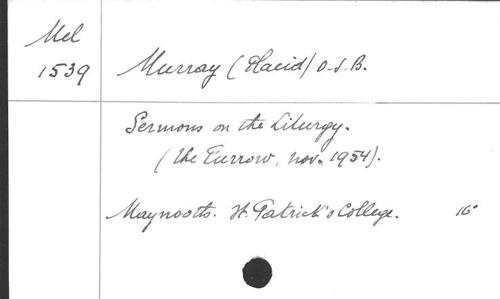 Mel
1539
Murray (Placid) O.S.B.
Sermons on the Liturgy.
(The Furrow, Nov. 1954).
Maynooth. St. Patrick's College. 16°